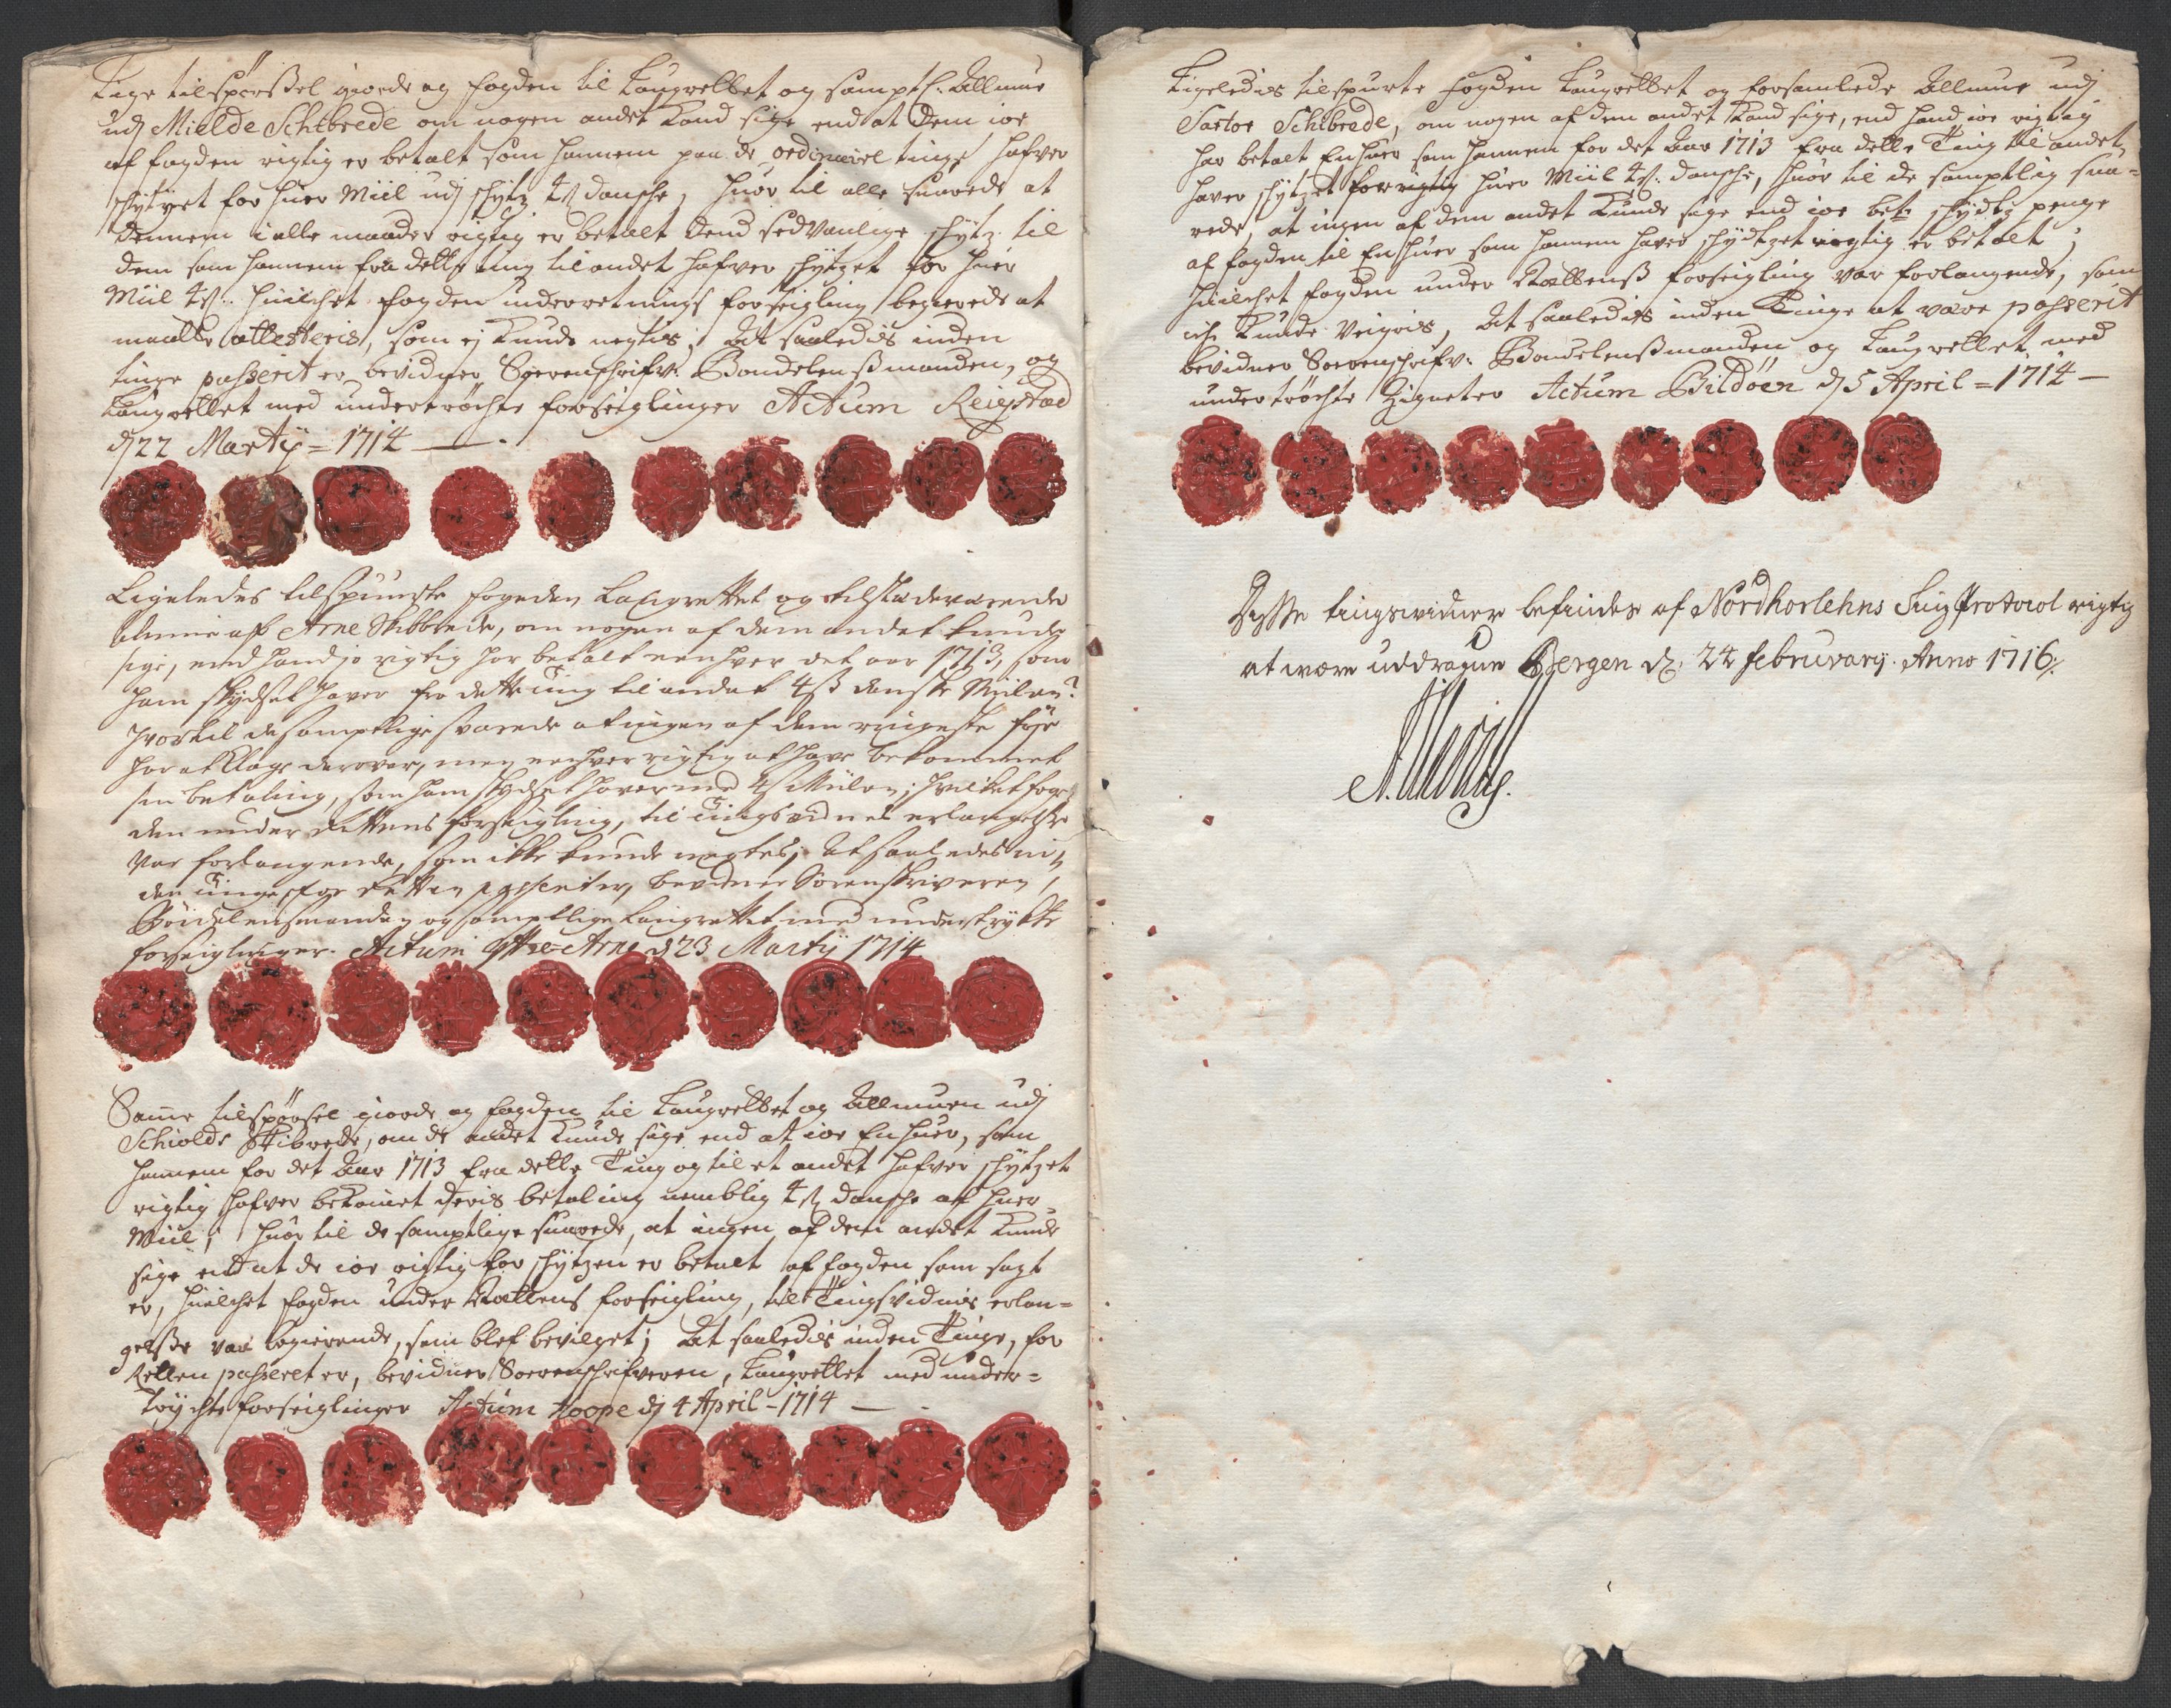 Lige tilspörßel giorde og fogden til Laugrettet og samptl: Allmue
udj Mielde Schibrede om nogen andet kand sige end at dem ioe
af fogden rigtig er betalt som hannem paa de ordinairel tinge hafver
schytzet for huer Miil udj schytz 4 ß dansche, huor til alle suarede at
dennem i alle maader rigtig er betalt dend sedvanlige schytz til
dem som hannem fra dette ting til andet hafver schytzet for huer
Miil 4 ß: huilchet fogden under retningß forseigling begierede at
maatte attesteris, som ej kunde negtis; At saaledis inden
tinge passerit er bevidner Sorenschrifv: Bondelenßmanden, og
Laugrettet med undertröchte forseiglinger Actum Reigstad
d 22 Martij = 1714 —
Ligeledes tilspurte fogeden Laugrettet og tilstedeværende
almue aff Arne Skibbrede, om nogen af dem andet kunde
sige, end hand jo rigtig har betalt een hver det aar 1713, som
ham skydset haver fra dette ting til andet 4 ß danske Miilen?
hvortil de samptlige svarede at ingen af dem ringeste föje
har at klage derover, men een hver rigtig at have bekommet
sin betaling, som ham skydset haver med 4 ß Miilen; hvilket foge-
den under Rettens forseigling, til tingsvidnes erlangelse
var forlangende, som ikke kunde negtes; At saaledes in-
den tinge for Retten passerit er, bevidner Sorenskriveren,
Bondelensmanden og samptlige Laugrettet med undertrykte
forseiglinger. Actum Ytre-Arne d 23 Martij 1714
Same tilspörsel giorde og fogden til Laugrettet og Allmuen udj
Schiolds Skibrede, om de andet kunde sige end at ioe En huer, som
hannem for det Aar 1713 fra dette Ting og til et andet hafver schytzet
rigtig hafver bekomet deris betaling nemblig 4 ß dansche af huer
Miil; huor til de samptlige suarede, at ingen af dem andet kunde
sige end at de ioe rigtig for schytzen er betalt af fogden som sagt
er, huilchet fogden under Rettens forseigling, til Tingsvidnis erlan=
gelße var begierende, som blef bevilget; At saaledis inden Tinge, for
Retten passeret er, bevidner Sorenschrifveren, Laugrettet med under=
tröychte forseiglinger Actum Hope dj 4 April - 1714 —
Ligeledis tilspurte fogden Laugrettet og forsamlede Allmue udj
Sartor Schibrede, om nogen af dem andet kand sige, end hand ioe rigtig
har betalt En huer som hannem for det Aar 1713 fra dette Ting til andet
haver schytzet for rigtig huer Miil 4 ß: dansche, huor til de samptlig sua=
rede, at ingen af dem andet kunde sige end ioe bete schydtz penge
af fogden til En huer som hannem haver schydtzet rigtig er betalt;
huilchet fogden under Rettenß forseigling var forlangende, som
ich kunde veigris, At saaledis inden Tinge at være passerit
bevidner Sorenschrifv: Bondelenßmanden og Laugrettet med
undertröchte Zigneter Actum Bildöen dj 5 April = 1714 —
Disse tingsvidner befindes af Nordhorlehns Ting Protocol rigtig
at være uddragne Bergen d. 24 februarij. Anno 1716